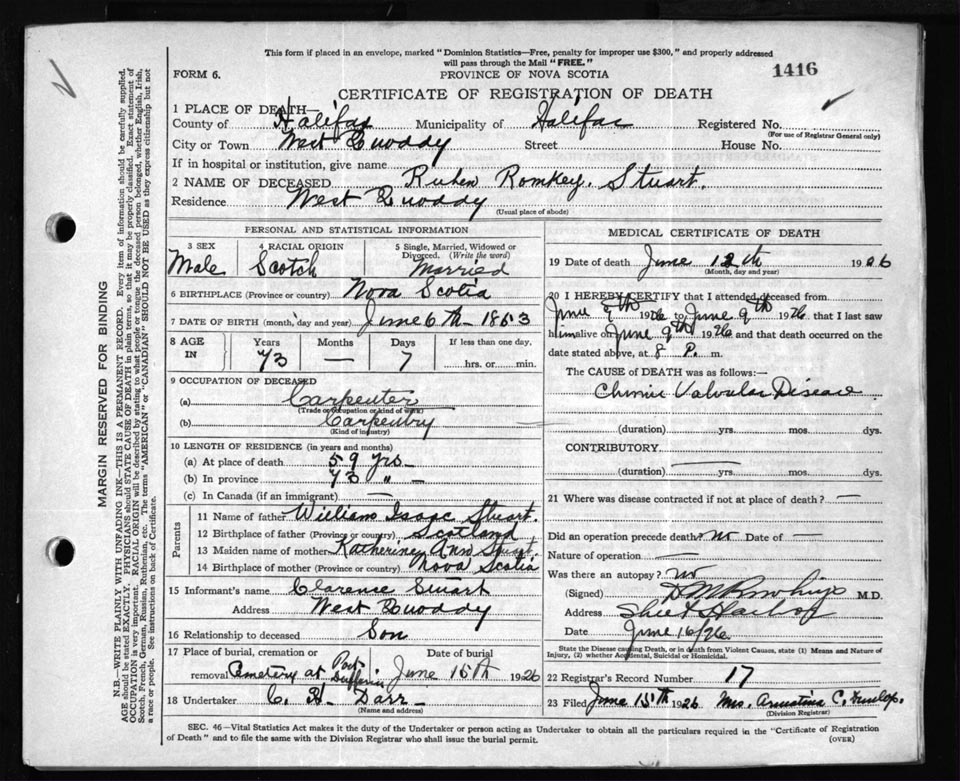 This form if placed in an envelope, marked "Dominion Statistics—Free, penalty for improper use $300," and properly addressed
will pass through the Mail "FREE."
1416
FORM 6.
PROVINCE OF NOVA SCOTIA
CERTIFICATE OF REGISTRATION OF DEATH
1 PLACE OF DEATH—
County of Halifax Municipality of Halifax Registered No.
(For use of Registrar General only)
City or Town West Quoddy Street House No.
If in hospital or institution, give name
2 NAME OF DECEASED Ruben Romkey. Stuart.
Residence West Quoddy
(Usual place of abode)
PERSONAL AND STATISTICAL INFORMATION
3 SEX 4 RACIAL ORIGIN 5 Single, Married, Widowed or
Divorced. (Write the word)
Male Scotch Married
6 BIRTHPLACE (Province or country) Nova Scotia
7 DATE OF BIRTH (month, day and year) June 6th 1853
8 AGE IN Years Months Days If less than one day.
73 — 7 hrs. or min.
9 OCCUPATION OF DECEASED
(a) Carpenter
(Trade or occupation or kind of work)
(b) Carpentry
(Kind of industry)
10 LENGTH OF RESIDENCE (in years and months)
(a) At place of death 59 yrs —
(b) In province 73 " —
(c) In Canada (if an immigrant) —
Parents
11 Name of father William Isaac Stuart.
12 Birthplace of father (Province or country) Scotland
13 Maiden name of mother Katherine Ann
14 Birthplace of mother (Province or country) Nova Scotia
15 Informant's name Clarence Stuart
Address West Quoddy
16 Relationship to deceased Son
17 Place of burial, cremation or Date of burial
removal Cemetery at Port Dufferin June 15th 1926
18 Undertaker C. H. Darr
(Name and address)
MEDICAL CERTIFICATE OF DEATH
19 Date of death June 12th 1926
(Month, day and year)
20 I HEREBY CERTIFY that I attended deceased from
June 9th 1926 to June 9th 1926 that I last saw
him alive on June 9th 1926 and that death occurred on
date stated above, at 8 P. m.
The CAUSE OF DEATH was as follows:—
Chronic Valvular Disease
(duration) yrs. mos. dys.
CONTRIBUTORY.
(duration) yrs. mos. dys.
21 Where was disease contracted if not at place of death? —
Did an operation precede death? no Date of —
Nature of operation —
Was there an autopsy? no
(Signed) M.D.
Address Sheet Harbor
Date June 16/26
State the Disease causing Death, or in death from Violent Causes, state (1) Means and Nature of
Injury, (2) whether Accidental, Suicidal or Homicidal.
22 Registrar's Record Number 17
23 Filed June 15th 1926 Mrs. C. Dunlop.
(Division Registrar)
SEC. 46—Vital Statistics Act makes it the duty of the Undertaker or person acting as Undertaker to obtain all the particulars required in the "Certificate of Registration
of Death" and to file the same with the Division Registrar who shall issue the burial permit.
(OVER)
MARGIN RESERVED FOR BINDING
N.B.—WRITE PLAINLY WITH UNFADING INK—THIS IS A PERMANENT RECORD. Every item of information should be carefully supplied.
AGE should be stated EXACTLY. PHYSICIANS should STATE CAUSE OF DEATH in plain terms, so that it may be properly classified. Exact statement of
OCCUPATION is very important. RACIAL ORIGIN will be described by stating to what people or tongue the deceased person belonged, whether English, Irish,
Scotch, French, German, Russian, Ruthenian, etc. The terms "AMERICAN" or "CANADIAN" SHOULD NOT BE USED as they express citizenship but not
a race or people. See instructions on back of Certificate.